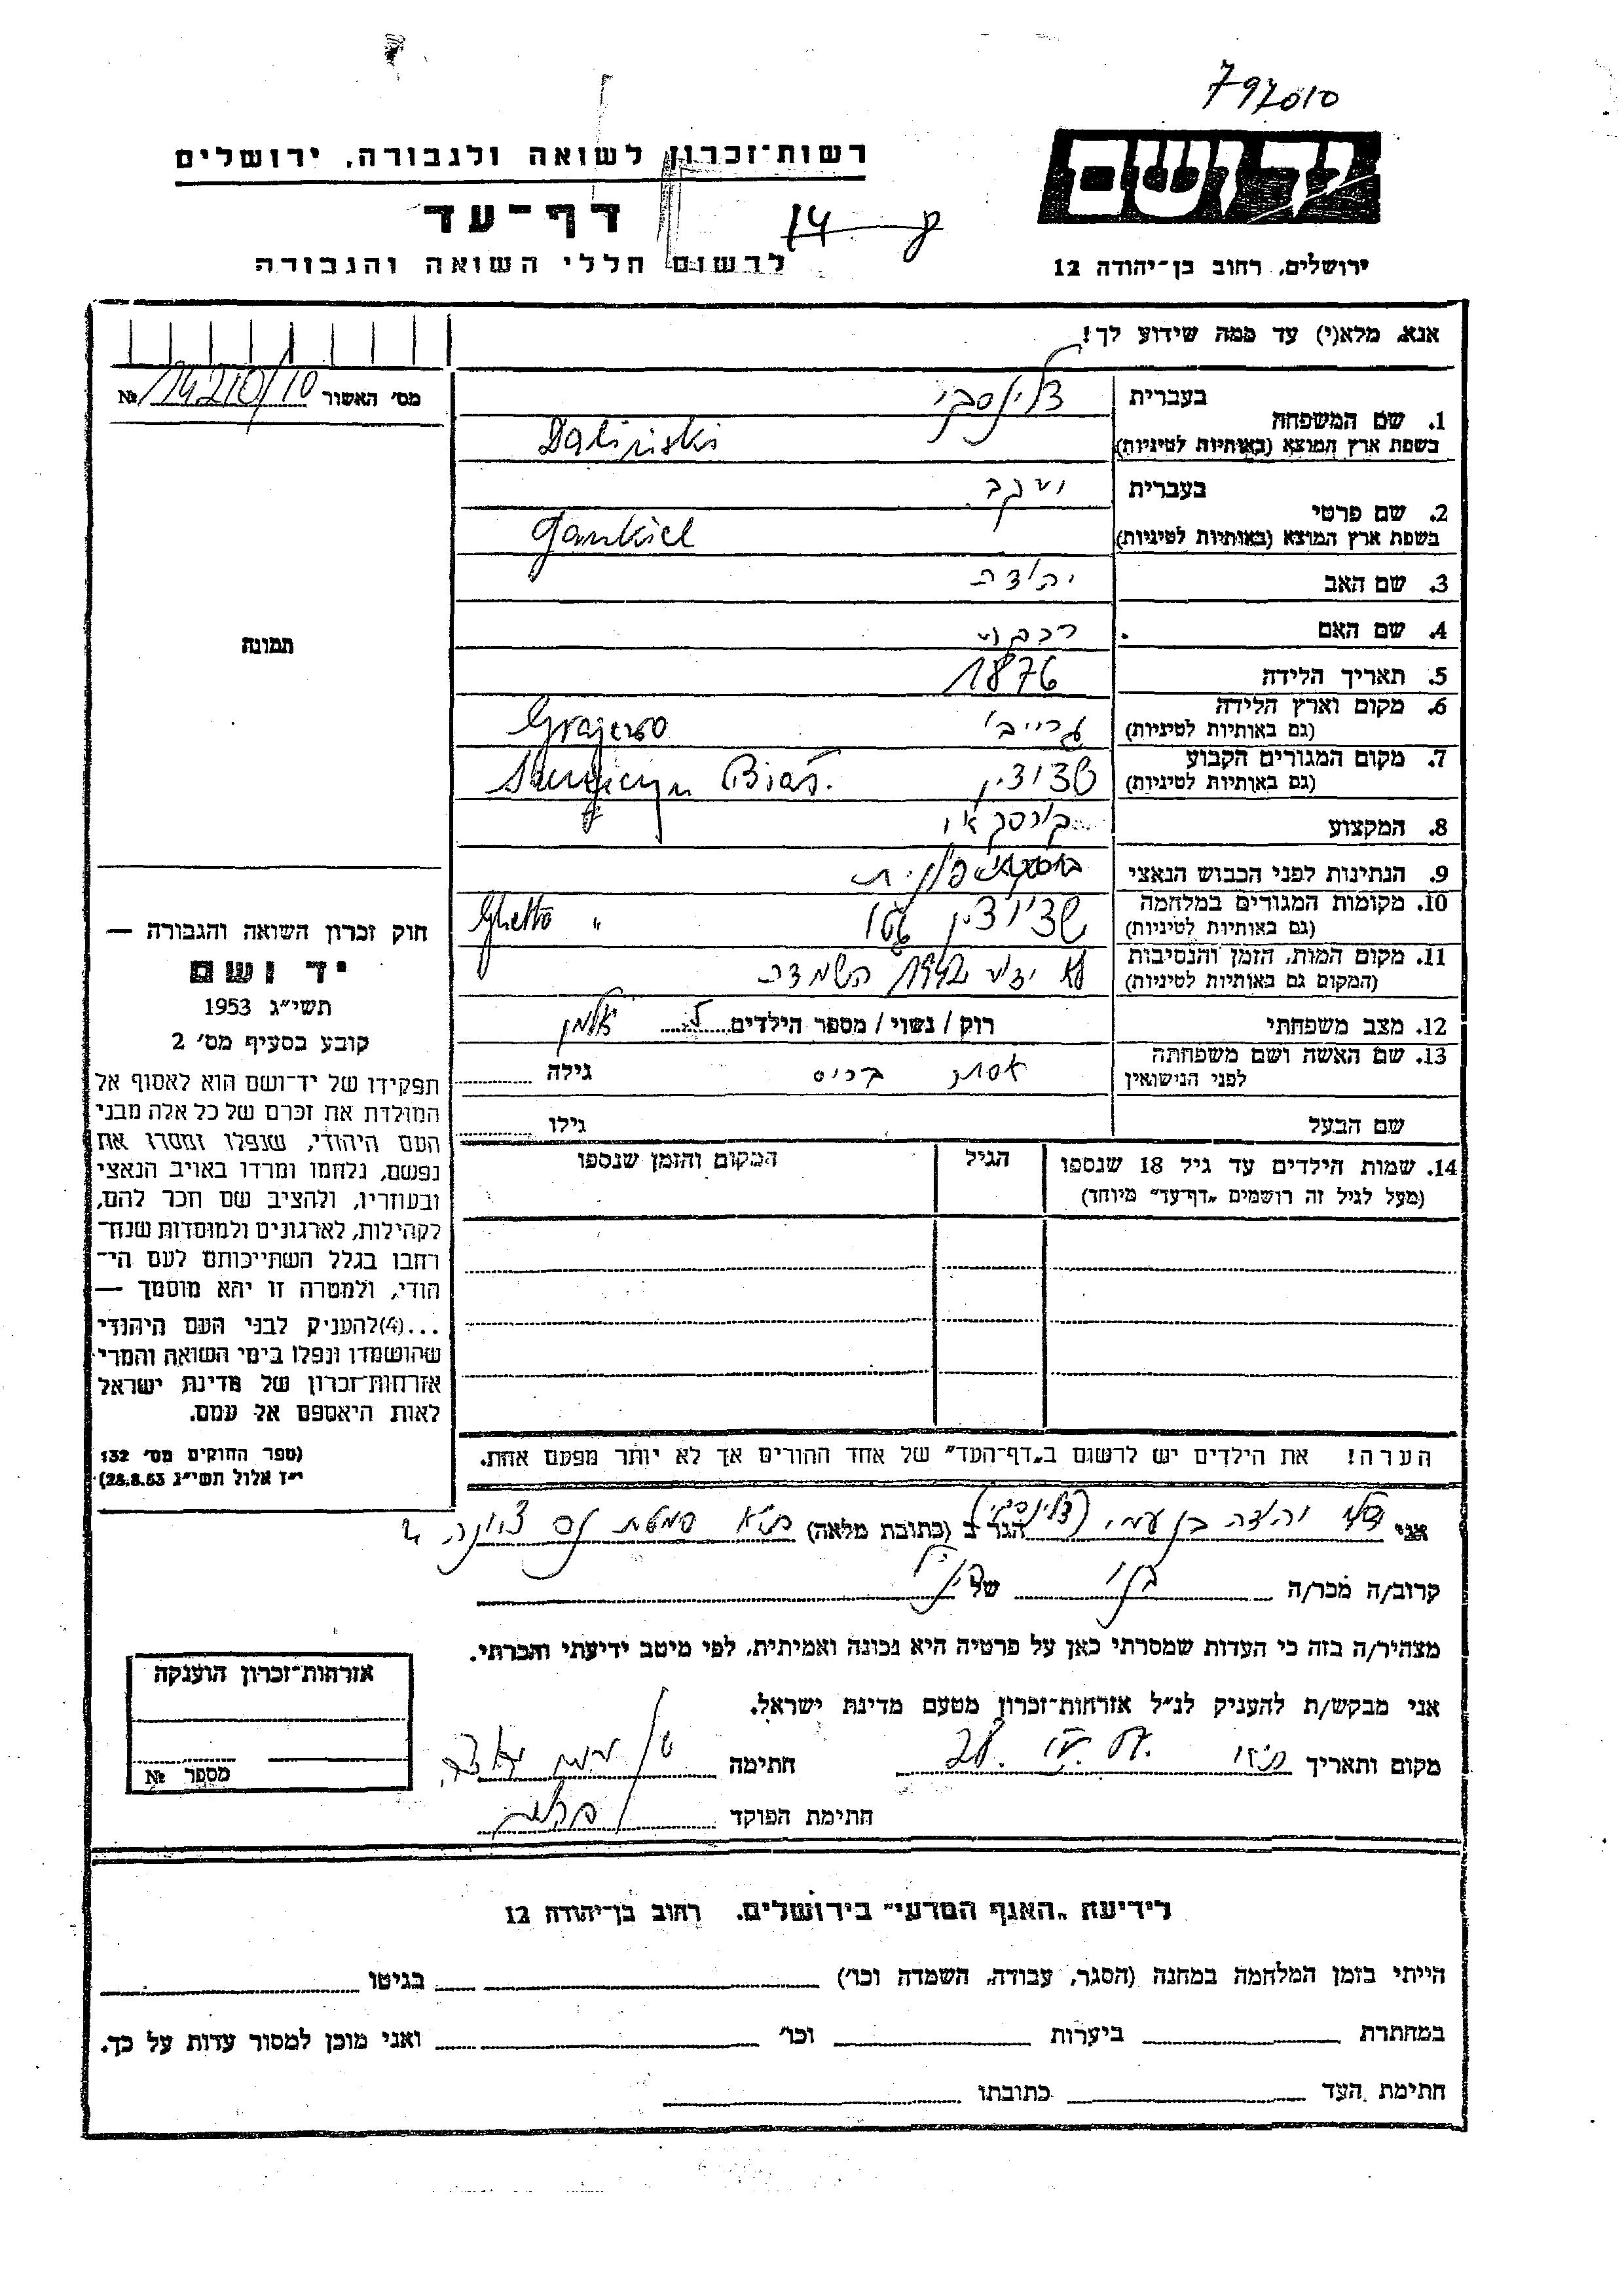 797010
רשות־זכרון לשואה ולגבורה, ירושלים
ידושם
דף־עד
14
לרשום חללי השואה והגבורה
ירושלים, רחוב בן־יהודה 12
אנא, מלא(י) עד כמה שידוע לך!
מס׳ האשור 14210/10 №
1. שם המשפחה
בעברית דלינסקי
בשפת ארץ המוצא (באותיות לטיניות) Dalinski
2. שם פרטי
בעברית יעקב
בשפת ארץ המוצא (באותיות לטיניות) Jankiel
3. שם האב יהודה
4. שם האם רבקה
5. תאריך הלידה 1876
6. מקום וארץ הלידה
(גם באותיות לטיניות) Grajewo
7. מקום המגורים הקבוע
(גם באותיות לטיניות) שצוצין
8. המקצוע
9. הנתינות לפני הכבוש הנאצי פולנית
10. מקומות המגורים במלחמה
(גם באותיות לטיניות) שצוצין גטו " Ghetto
11. מקום המות, הזמן והנסיבות
(המקום גם באותיות לטיניות) לא ידוע 1942 השמדה
12. מצב משפחתי רוק / נשוי / מספר הילדים אלמן
13. שם האשה ושם משפחתה
לפני הנישואין אסתר גילה
שם הבעל גילו
14. שמות הילדים עד גיל 18 שנספו
(מעל לגיל זה רושמים „דף־עד״ מיוחד)
הגיל
המקום והזמן שנספו
הערה! את הילדים יש לרשום ב„דף־העד״ של אחד ההורים אך לא יותר מפעם אחת.
תמונה
חוק זכרון השואה והגבורה —
יד ושם
תשי״ג 1953
קובע בסעיף מס׳ 2
תפקידו של יד־ושם הוא לאסוף אל
המולדת את זכרם של כל אלה מבני
העם היהודי, שנפלו ומסרו את
נפשם, נלחמו ומרדו באויב הנאצי
ובעוזריו, ולהציב שם וזכר להם,
לקהילות, לארגונים ולמוסדות שנח־
רחבו בגלל השתייכותם לעם הי־
הודי, ולמטרה זו יהא מוסמך —
...(4)להעניק לבני העם היהודי
שהושמדו ונפלו בימי השואה והמרי
אזרחות־זכרון של מדינת ישראל
לאות היאספם אל עמם.
(ספר החוקים מס׳ 132
י״ז אלול תשי״ג 28.8.53)
אני יהודה בן עמי (דלינסקי) הגר ב (כתובת מלאה) ת״א סמטת
קרוב/ה מכר/ה בן של
מצהיר/ה בזה כי העדות שמסרתי כאן על פרטיה היא נכונה ואמיתית, לפי מיטב ידיעתי והכרתי.
אני מבקש/ת להעניק לנ״ל אזרחות־זכרון מטעם מדינת ישראל.
מקום ותאריך חתימה
חתימת הפוקד
אזרחות־זכרון הוענקה
מספר №
לידיעת „האגף המדעי״ בירושלים, רחוב בן־יהודה 12
הייתי בזמן המלחמה במחנה (הסגר, עבודה, השמדה וכו׳) בגיטו
במחתרת ביערות וכו׳ ואני מוכן למסור עדות על כך.
חתימת העד כתובתו